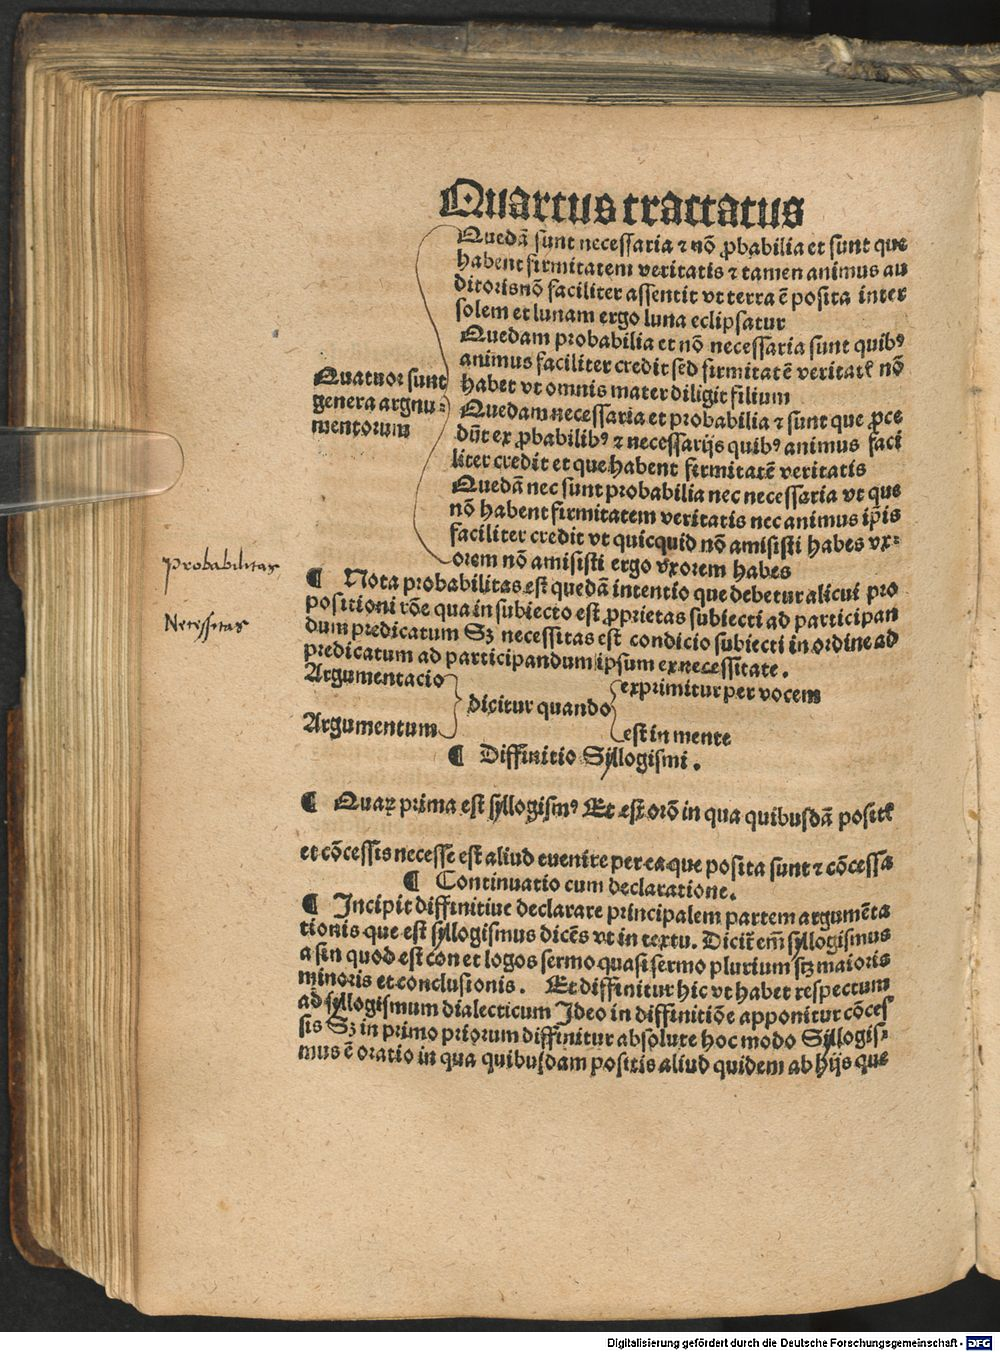 Quartus tractatus
Quedā sunt necessaria ⁊ nō ꝓbabilia et sunt que
habent firmitatem veritatis ⁊ tamen animus au
ditoris nō faciliter assentit vt terra ē posita inter
solem et lunam ergo luna eclipsatur
Quedam probabilia et nō necessaria sunt quibꝰ
animus faciliter credit sed firmitatē veritatꝭ nō
habet vt omnis mater diligit filium
Quatuor sunt
genera argnu⸗
mentorum
Quedam necessaria et probabilia ⁊ sunt que ꝓce
dūt ex ꝓbabilibꝰ ⁊ necessarijs quibꝰ animus faci
liter credit et que habent firmitatē veritatis
Quedā nec sunt probabilia nec necessaria vt que
nō habent firmitatem veritatis nec animus ip̄is
faciliter credit vt quicquid nō amisisti habes vx⸗
orem nō amisisti ergo vxorem habes
Probabilitas
Necessitas
¶ Nota probabilitas est quedā intentio que debetur alicui pro
positioni rōe qua in subiecto est ꝓprietas subiecti ad participan
dum predicatum Sꝫ necessitas est condicio subiecti in ordine ad
predicatum ad participandum ipsum ex necessitate.
Argumentacio
Argumentum
dicitur quando
exprimitur per vocem
est in mente
¶ Diffinitio Syllogismi.
¶ Quaꝝ prima est syllogismꝰ Et est orō in qua quibusdā positꝭ
et cōcessis necesse est aliud euenire per ea que posita sunt ⁊ cōcessa
¶ Continuatio cum declaratione.
¶ Incipit diffinitiue declarare principalem partem argumēta
tionis que est syllogismus dicēs vt in textu. Dicit̄ em̄ syllogismus
a sin quod est con et logos sermo quasi sermo plurium sꝫ maioris
minoris et conclusionis. Et diffinitur hic vt habet respectum
ad syllogismum dialecticum Ideo in diffinitiōe apponitur cōces
sis Sꝫ in primo priorum diffinitur absolute hoc modo Syllogis⸗
mus ē oratio in qua quibusdam positis aliud quidem ab hijs que
Digitalisierung gefördert durch die Deutsche Forschungsgemeinschaft - DFG